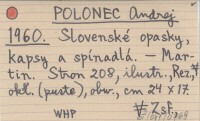 POLONEC Andrej
1960. Slovenské opasky,
kapsy a spínadlá. – Mar-
tin. Stron 208, ilustr., Rez.,
okł. (puste), obw., cm 24 x 17.
WHP